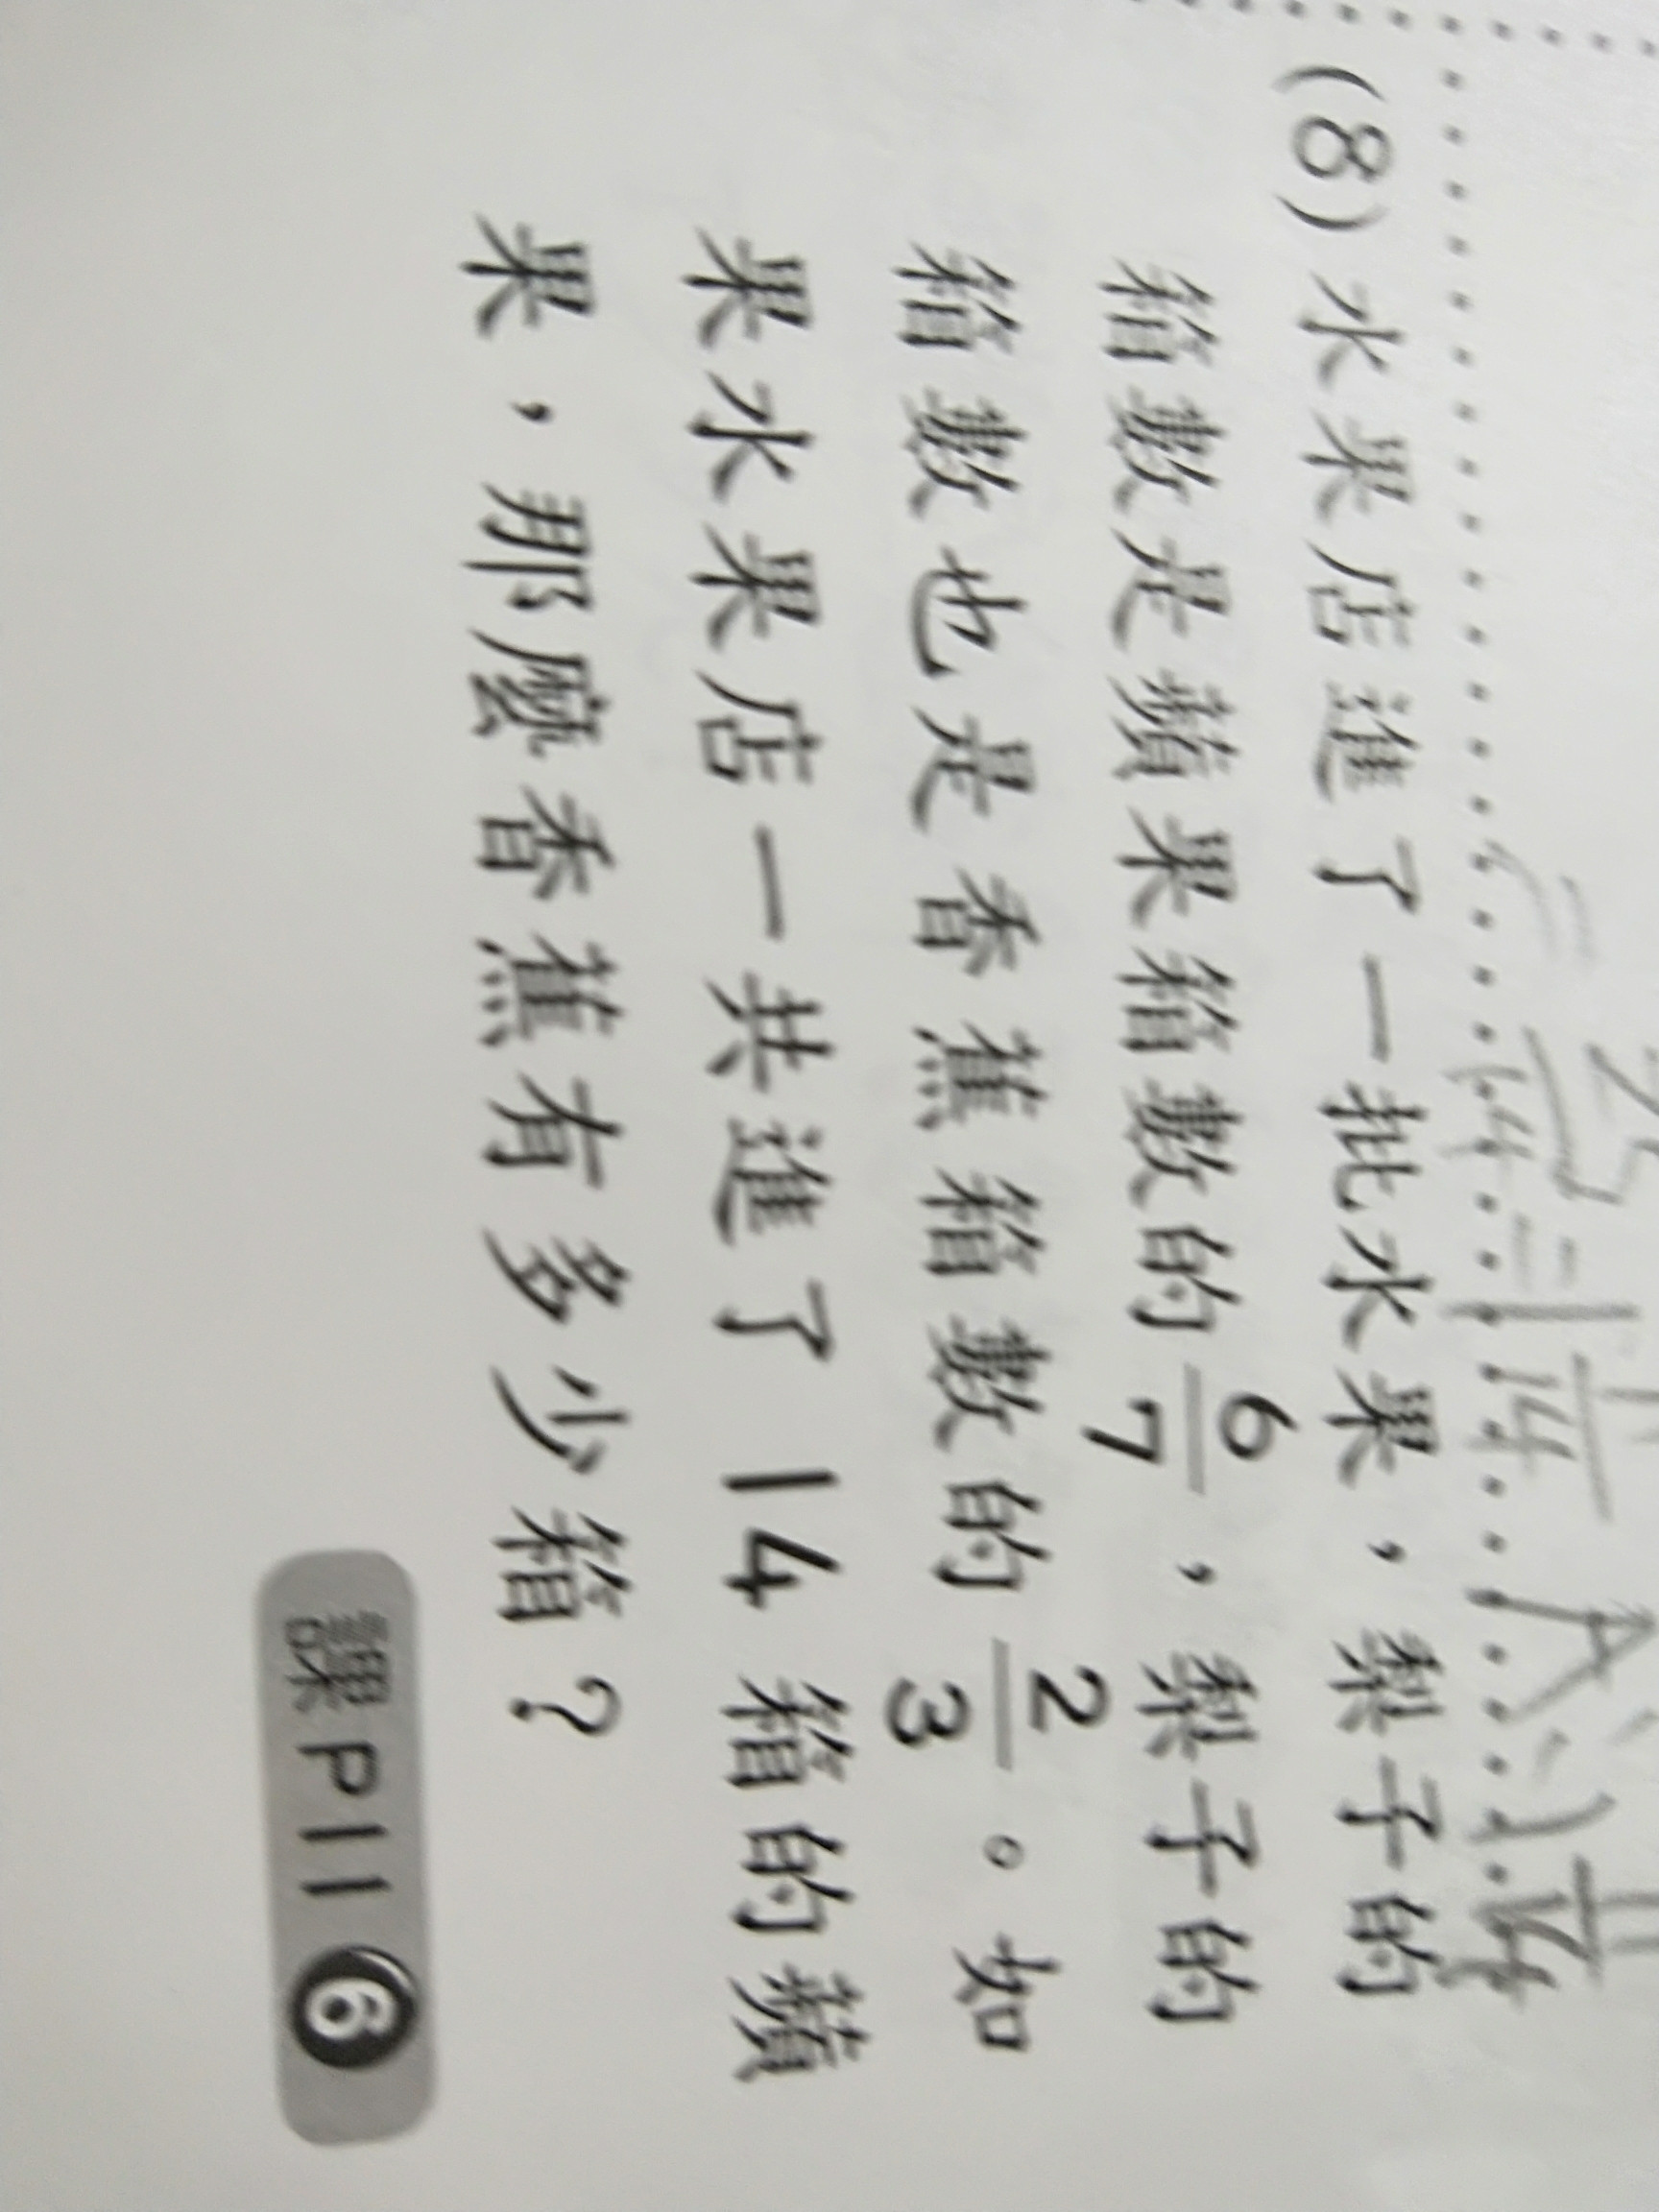 (8) 水果店進了一批水果，梨子的
箱數是蘋果箱數的 6/7 ，梨子的
箱數也是香蕉箱數的 2/3 。如
果水果店一共進了 14 箱的蘋
果，那麼香蕉有多少箱？
課P11 6